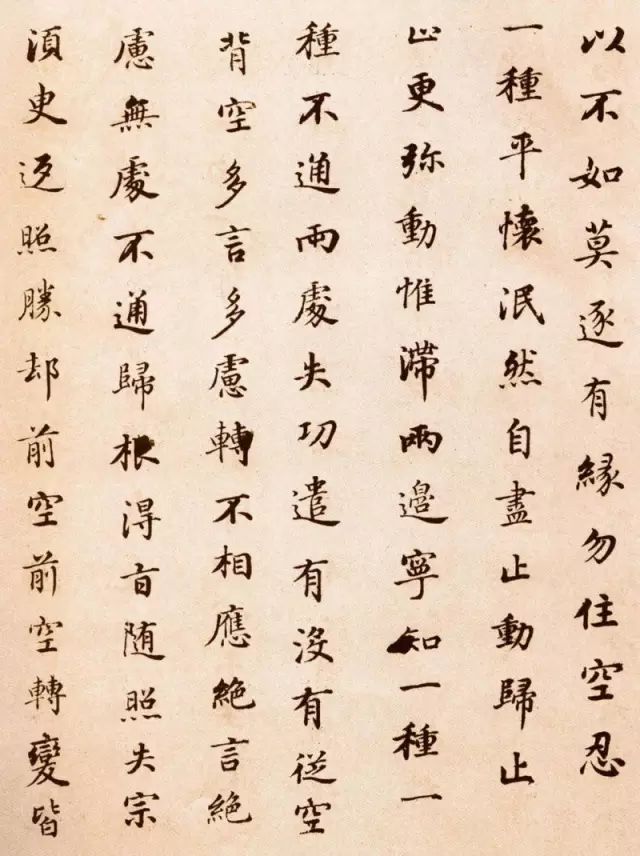 以不如莫逐有緣勿住空忍
一種平懷泯然自盡止動歸止
止更弥動惟滯兩邊寧知一種一
種不通兩處失功遣有沒有從空
背空多言多慮轉不相應絕言絕
慮無處不通歸根得旨随照失宗
須臾返照勝却前空前空轉變皆